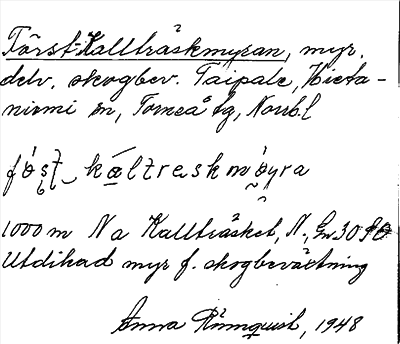 Först-Kallträskmyran, myr,
delv. skogbev. Taipale, Hieta-
niemi sn, Torneå tg, Norrb.l
fö́șt‿ kálltreskmøyra
1000 m N a Kallträsket, N,
Utdikad myr f. skogbeväxtning
Anna Rönnquist, 1948